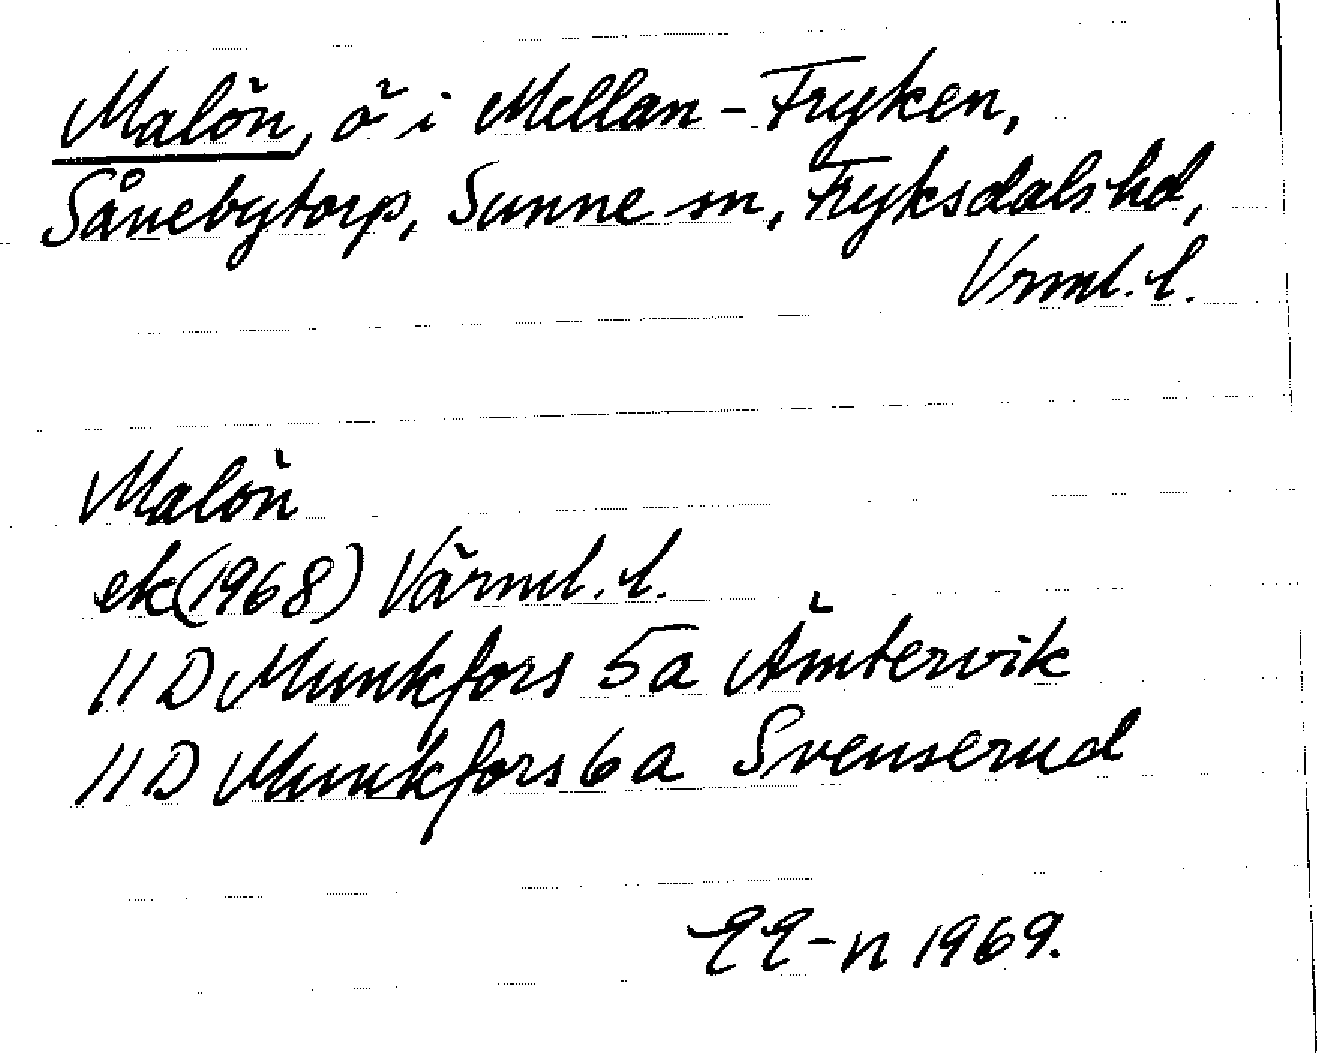 Malön, ö i Mellan-Fryken,
Sånebytorp, Sunne sn, Fryksdals hd,
Vrml. l.
Malön
ek (1968) Värml. l.
11 D Munkfors 5a Ämtervik
11 D Munkfors 6a Svenserud
EE-n 1969.